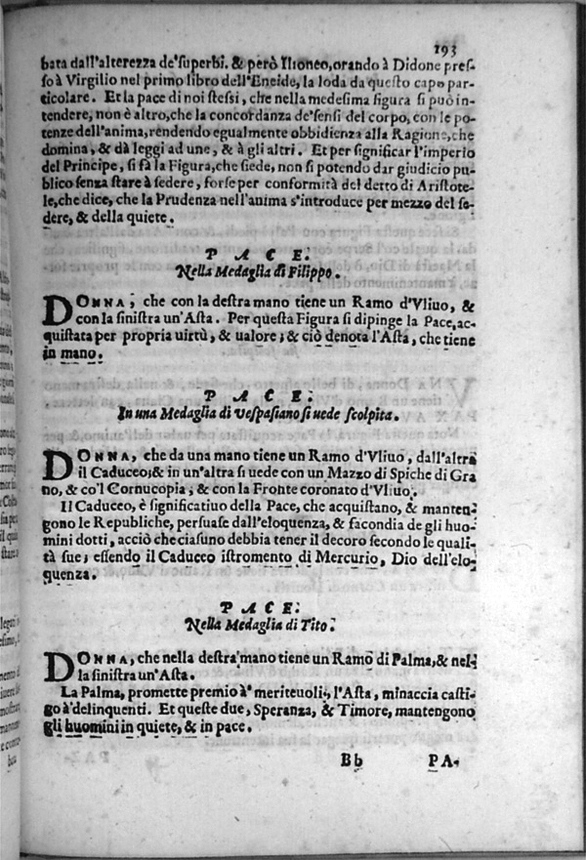 193
bata dall'alterezza de'superbi. & però Ilioneo, orando à Didone pres-
so à Virgilio nel primo libro dell'Eneide, la loda da questo capo par-
ticolare. Et la pace di noi stessi, che nella medesima figura si può in-
tendere, non è altro, che la concordanza de'sensi del corpo, con le po-
tenze dell'anima, rendendo egualmente obbidienza alla Ragione, che
domina, & dà leggi ad une, & à gli altri. Et per significar l'imperio
del Principe, si fà la Figura, che siede, non si potendo dar giudicio pu-
blico senza stare à sedere, forse per conformità del detto di Aristote-
le, che dice, che la Prudenza nell'anima s'introduce per mezzo del se-
dere, & della quiete.
PACE.
Nella Medaglia di Filippo.
DONNA, che con la destra mano tiene un Ramo d'Vliuo, &
con la sinistra un'Asta. Per questa Figura si dipinge la Pace, ac-
quistata per propria uirtù, & ualore; & ciò denota l'Asta, che tiene
in mano.
PACE.
In una Medaglia di Vespasiano si uede scolpita.
DONNA, che da una mano tiene un Ramo d'Vliuo, dall'altra
il Caduceo; & in un'altra si uede con un Mazzo di Spiche di Gra
no, & co'l Cornucopia; & con la Fronte coronato d'Vliuo.
Il Caduceo, è significatiuo della Pace, che acquistano, & manten-
gono le Republiche, persuase dall'eloquenza, & facondia de gli huo-
mini dotti, acciò che ciasuno debbia tener il decoro secondo le quali-
tà sue, essendo il Caduceo istromento di Mercurio, Dio dell'elo-
quenza.
PACE.
Nella Medaglia di Tito.
DONNA, che nella destra mano tiene un Ramo di Palma, & nel-
la sinistra un'Asta.
La Palma, promette premio à' meriteuoli, l'Asta, minaccia casti-
go à'delinquenti. Et queste due, Speranza, & Timore, mantengono
gli huomini in quiete, & in pace.
Bb PA-